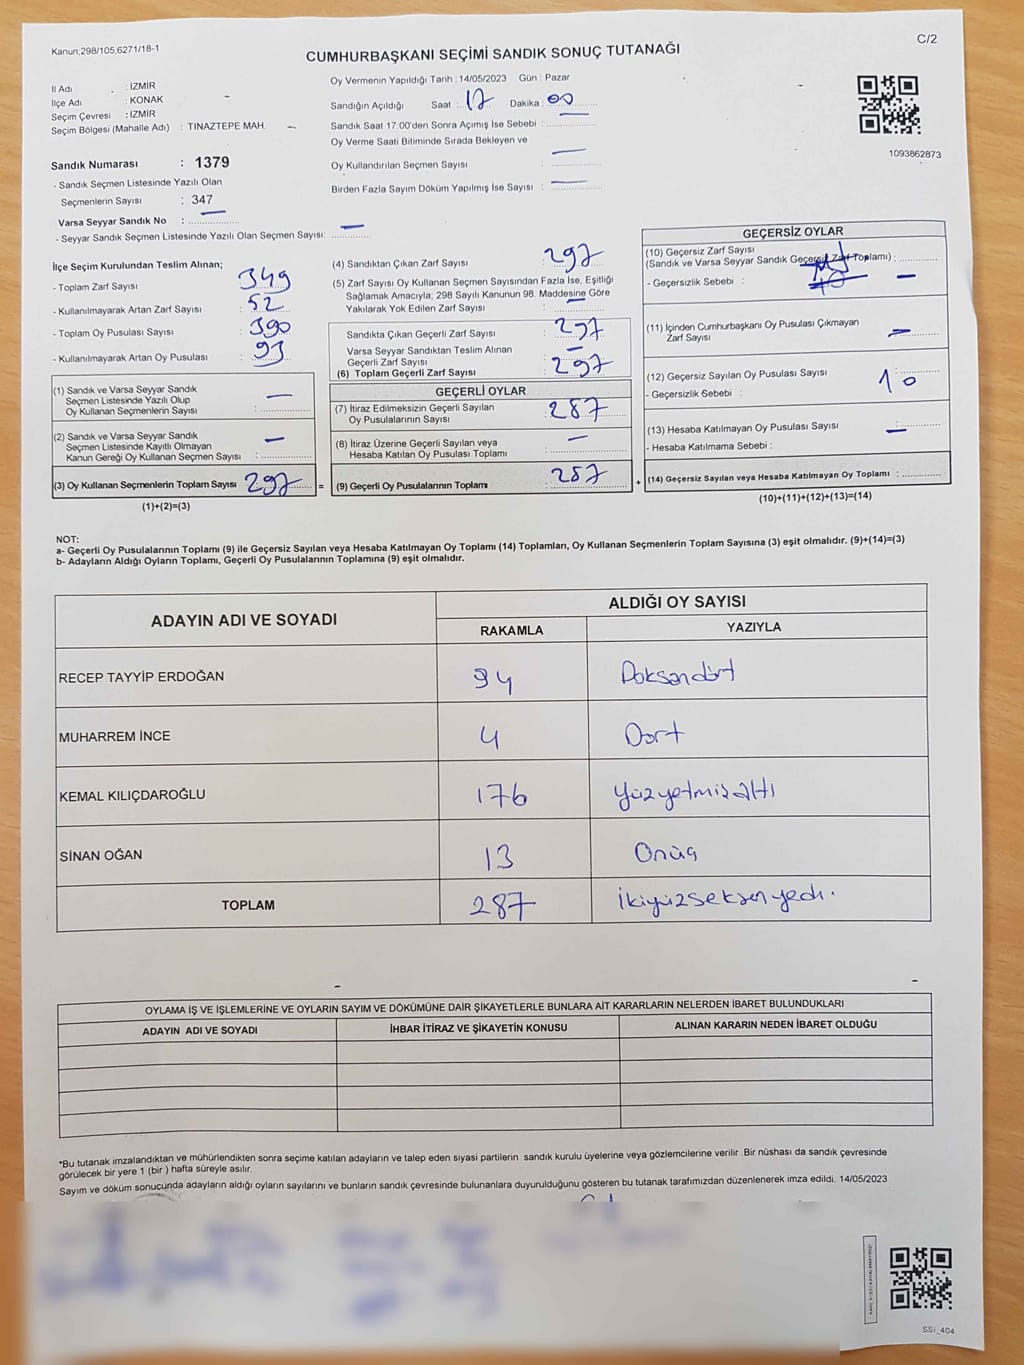 Kanun;298/105,6271/18-1
C/2
CUMHURBAŞKANI SEÇİMİ SANDIK SONUÇ TUTANAĞI
İl Adı : İZMİR
İlçe Adı : KONAK
Seçim Çevresi : İZMİR
Seçim Bölgesi (Mahalle Adı) : TINAZTEPE MAH.
Oy Vermenin Yapıldığı Tarih : 14/05/2023 Gün : Pazar
Sandığın Açıldığı Saat : 17 Dakika : 00
Sandık Saat 17:00'den Sonra Açımış İse Sebebi : —
Oy Verme Saati Bitiminde Sırada Bekleyen ve
Oy Kullandırılan Seçmen Sayısı : —
Birden Fazla Sayım Döküm Yapılmış İse Sayısı : —
1093862873
Sandık Numarası : 1379
- Sandık Seçmen Listesinde Yazılı Olan
Seçmenlerin Sayısı : 347
Varsa Seyyar Sandık No : —
- Seyyar Sandık Seçmen Listesinde Yazılı Olan Seçmen Sayısı: —
İlçe Seçim Kurulundan Teslim Alınan;
- Toplam Zarf Sayısı : 349
- Kullanılmayarak Artan Zarf Sayısı : 52
- Toplam Oy Pusulası Sayısı : 390
- Kullanılmayarak Artan Oy Pusulası : 93
(1) Sandık ve Varsa Seyyar Sandık
Seçmen Listesinde Yazılı Olup
Oy Kullanan Seçmenlerin Sayısı : —
(2) Sandık ve Varsa Seyyar Sandık
Seçmen Listesinde Kayıtlı Olmayan
Kanun Gereği Oy Kullanan Seçmen Sayısı : —
(3) Oy Kullanan Seçmenlerin Toplam Sayısı : 297 =
(1)+(2)=(3)
(4) Sandıktan Çıkan Zarf Sayısı : 297
(5) Zarf Sayısı Oy Kullanan Seçmen Sayısından Fazla İse, Eşitliği
Sağlamak Amacıyla; 298 Sayılı Kanunun 98. Maddesine Göre
Yakılarak Yok Edilen Zarf Sayısı : —
Sandıkta Çıkan Geçerli Zarf Sayısı : 297
Varsa Seyyar Sandıktan Teslim Alınan
Geçerli Zarf Sayısı : —
(6) Toplam Geçerli Zarf Sayısı : 297
GEÇERLİ OYLAR
(7) İtiraz Edilmeksizin Geçerli Sayılan
Oy Pusulalarının Sayısı : 287
(8) İtiraz Üzerine Geçerli Sayılan veya
Hesaba Katılan Oy Pusulası Toplamı : —
(9) Geçerli Oy Pusulalarının Toplamı : 287 +
GEÇERSİZ OYLAR
(10) Geçersiz Zarf Sayısı
(Sandık ve Varsa Seyyar Sandık Geçersiz Zarf Toplamı) :
- Geçersizlik Sebebi : —
(11) İçinden Cumhurbaşkanı Oy Pusulası Çıkmayan
Zarf Sayısı : —
(12) Geçersiz Sayılan Oy Pusulası Sayısı : 10
- Geçersizlik Sebebi :
(13) Hesaba Katılmayan Oy Pusulası Sayısı : —
- Hesaba Katılmama Sebebi :
(14) Geçersiz Sayılan veya Hesaba Katılmayan Oy Toplamı :
(10)+(11)+(12)+(13)=(14)
NOT:
a- Geçerli Oy Pusulalarının Toplamı (9) ile Geçersiz Sayılan veya Hesaba Katılmayan Oy Toplamı (14) Toplamları, Oy Kullanan Seçmenlerin Toplam Sayısına (3) eşit olmalıdır. (9)+(14)=(3)
b- Adayların Aldığı Oyların Toplamı, Geçerli Oy Pusulalarının Toplamına (9) eşit olmalıdır.
ADAYIN ADI VE SOYADI ALDIĞI OY SAYISI
RAKAMLA YAZIYLA
RECEP TAYYİP ERDOĞAN 94 Doksandört
MUHARREM İNCE 4 Dört
KEMAL KILIÇDAROĞLU 176 Yüzyetmişaltı
SİNAN OĞAN 13 Onüç
TOPLAM 287 İkiyüzseksenyedi.
OYLAMA İŞ VE İŞLEMLERİNE VE OYLARIN SAYIM VE DÖKÜMÜNE DAİR ŞİKAYETLERLE BUNLARA AİT KARARLARIN NELERDEN İBARET BULUNDUKLARI
ADAYIN ADI VE SOYADI İHBAR İTİRAZ VE ŞİKAYETİN KONUSU ALINAN KARARIN NEDEN İBARET OLDUĞU
*Bu tutanak imzalandıktan ve mühürlendikten sonra seçime katılan adayların ve talep eden siyasi partilerin sandık kurulu üyelerine veya gözlemcilerine verilir .Bir nüshası da sandık çevresinde
görülecek bir yere 1 (bir ) hafta süreyle asılır.
Sayım ve döküm sonucunda adayların aldığı oyların sayılarını ve bunların sandık çevresinde bulunanlara duyurulduğunu gösteren bu tutanak tarafımızdan düzenlenerek imza edildi. 14/05/2023
SSİ_404